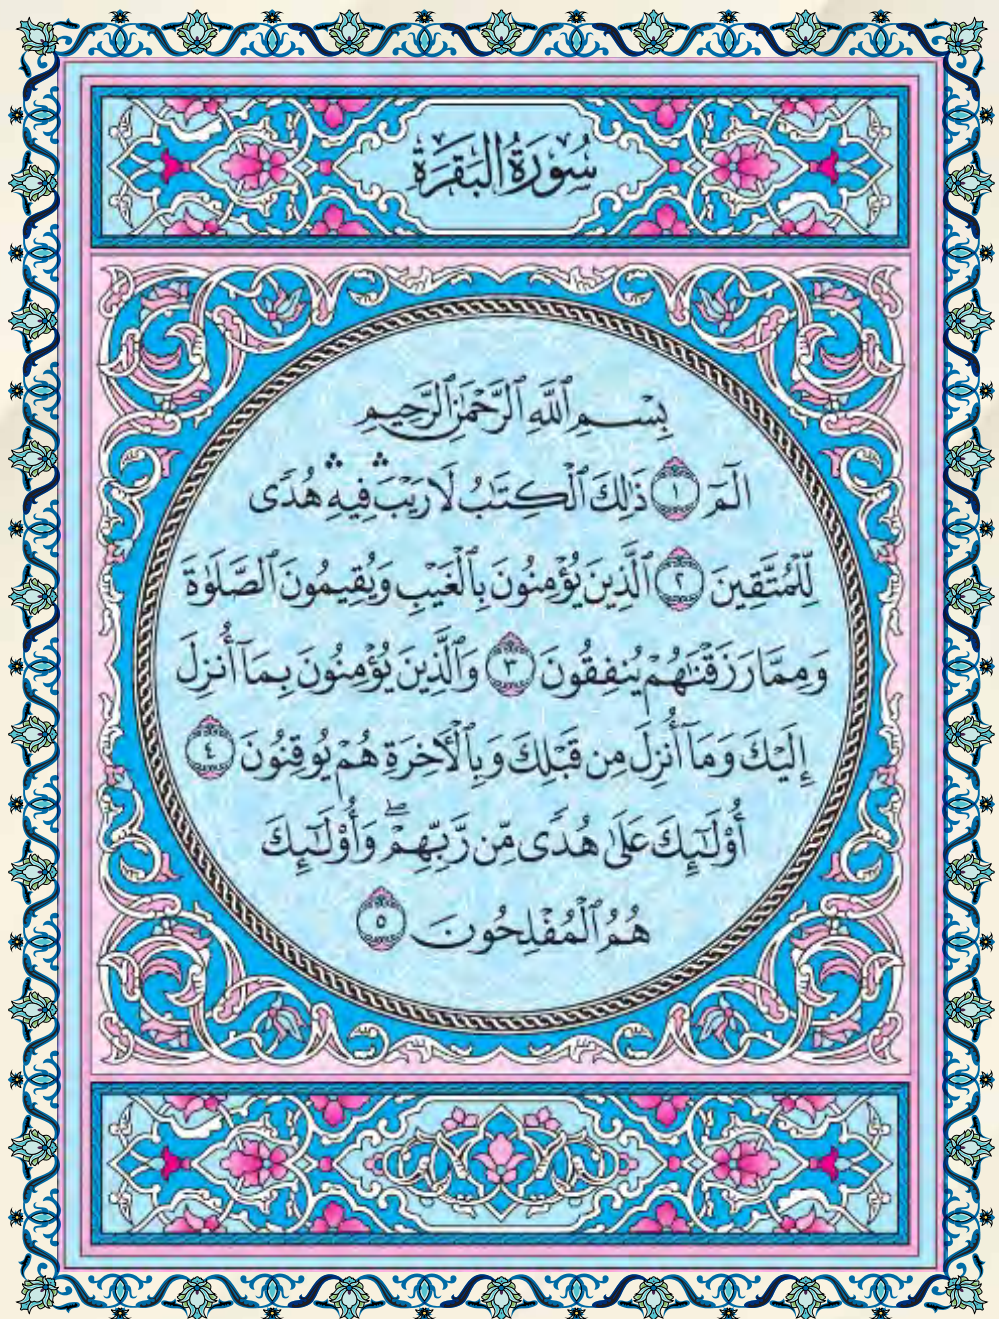 سُورَةُ البَقَرَةِ
بِسْمِ ٱللَّهِ ٱلرَّحْمَٰنِ ٱلرَّحِيمِ
الٓمٓ ۝١ ذَٰلِكَ ٱلْكِتَٰبُ لَا رَيْبَ ۛ فِيهِ ۛ هُدًى
لِّلْمُتَّقِينَ ۝٢ ٱلَّذِينَ يُؤْمِنُونَ بِٱلْغَيْبِ وَيُقِيمُونَ ٱلصَّلَوٰةَ
وَمِمَّا رَزَقْنَٰهُمْ يُنفِقُونَ ۝٣ وَٱلَّذِينَ يُؤْمِنُونَ بِمَآ أُنزِلَ
إِلَيْكَ وَمَآ أُنزِلَ مِن قَبْلِكَ وَبِٱلْءَاخِرَةِ هُمْ يُوقِنُونَ ۝٤
أُو۟لَٰٓئِكَ عَلَىٰ هُدًى مِّن رَّبِّهِمْ ۖ وَأُو۟لَٰٓئِكَ
هُمُ ٱلْمُفْلِحُونَ ۝٥